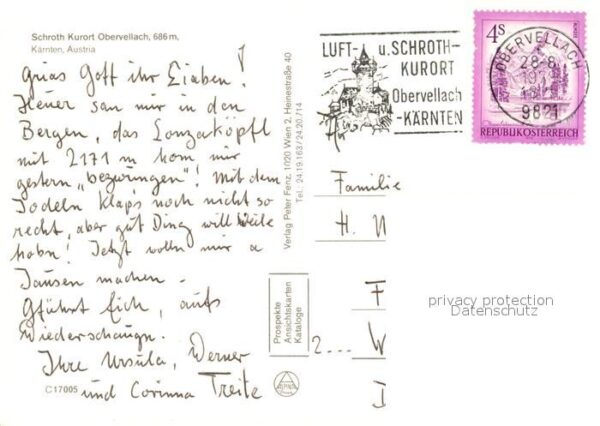 Schroth Kurort Obervellach, 686 m,
Kärnten, Austria
Grias Gott ihr Liaben!
Heuer san mir in den
Bergen, das Lonzaköpfl
mit 2171 m hom mir
gestern "bezwungen"! Mit dem
Jodeln klaps noch nicht so
recht, aber gut Ding will Weile
habn! Jetzt volln mir a
Jausen machen.
Gführt Eich, aufs
Wiederschaugn.
Ihre Ursula, Werner
und Corinna Treite
C 17005
Verlag Peter Fenz, 1020 Wien 2, Heinestraße 40
Tel.: 24.19.163/24.20.714
Prospekte
Ansichtskarten
Kataloge
LUFT- u. SCHROTH-
KURORT
Obervellach
-KÄRNTEN
4S
REPUBLIK ÖSTERREICH
OBERVELLACH
28-8
9821
Familie
H. N
F
2... W
D
privacy protection
Datenschutz